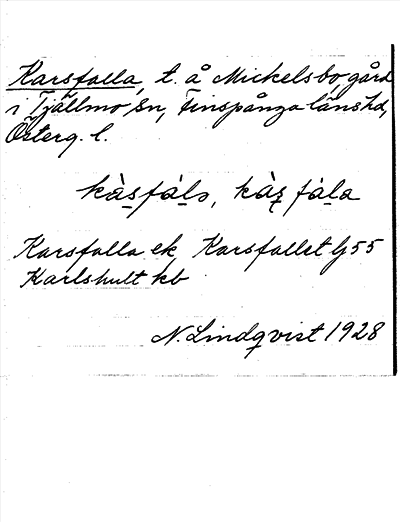 Karsfalla, t. å Mickelsbo gård
i Tjällmo sn, Finspånga länshd,
Österg. l.
kàs̲fál̲ɔ, kàʂ̲ fál̲a
Karsfalla ek Karsfallet G 55
Karlshult kb
N. Lindqvist 1928